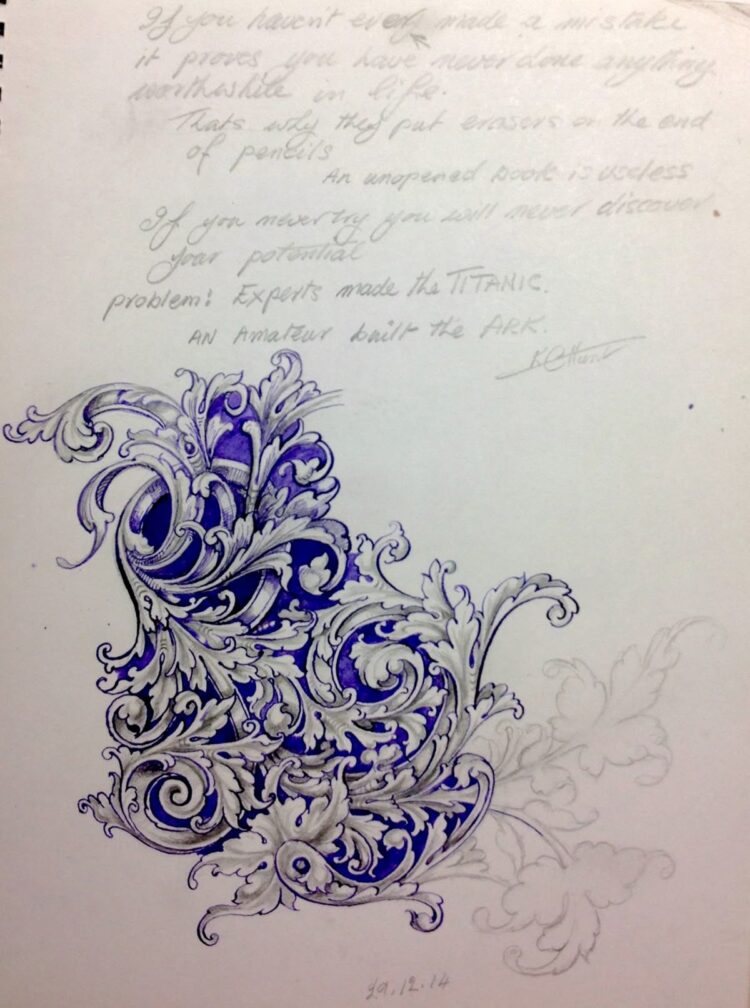 If you haven't ever made a mistake
it proves you have never done anything
worthwhile in life.
Thats why they put erasers on the end
of pencils
An unopened book is useless
If you never try you will never discover
your potential
problem: Experts made the TITANIC.
AN Amateur built the ARK.
29.12.14